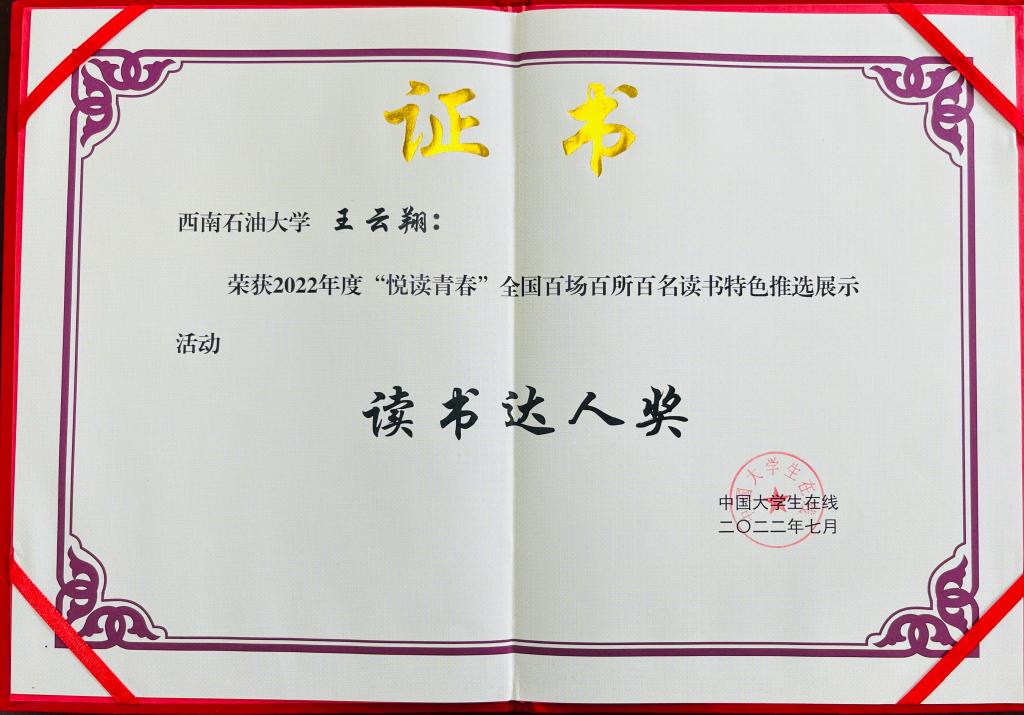 证书
西南石油大学 王云翔：
荣获2022年度“悦读青春”全国百场百所百名读书特色推选展示
活动
读书达人奖
中国大学生在线
中国大学生在线
二〇二二年七月